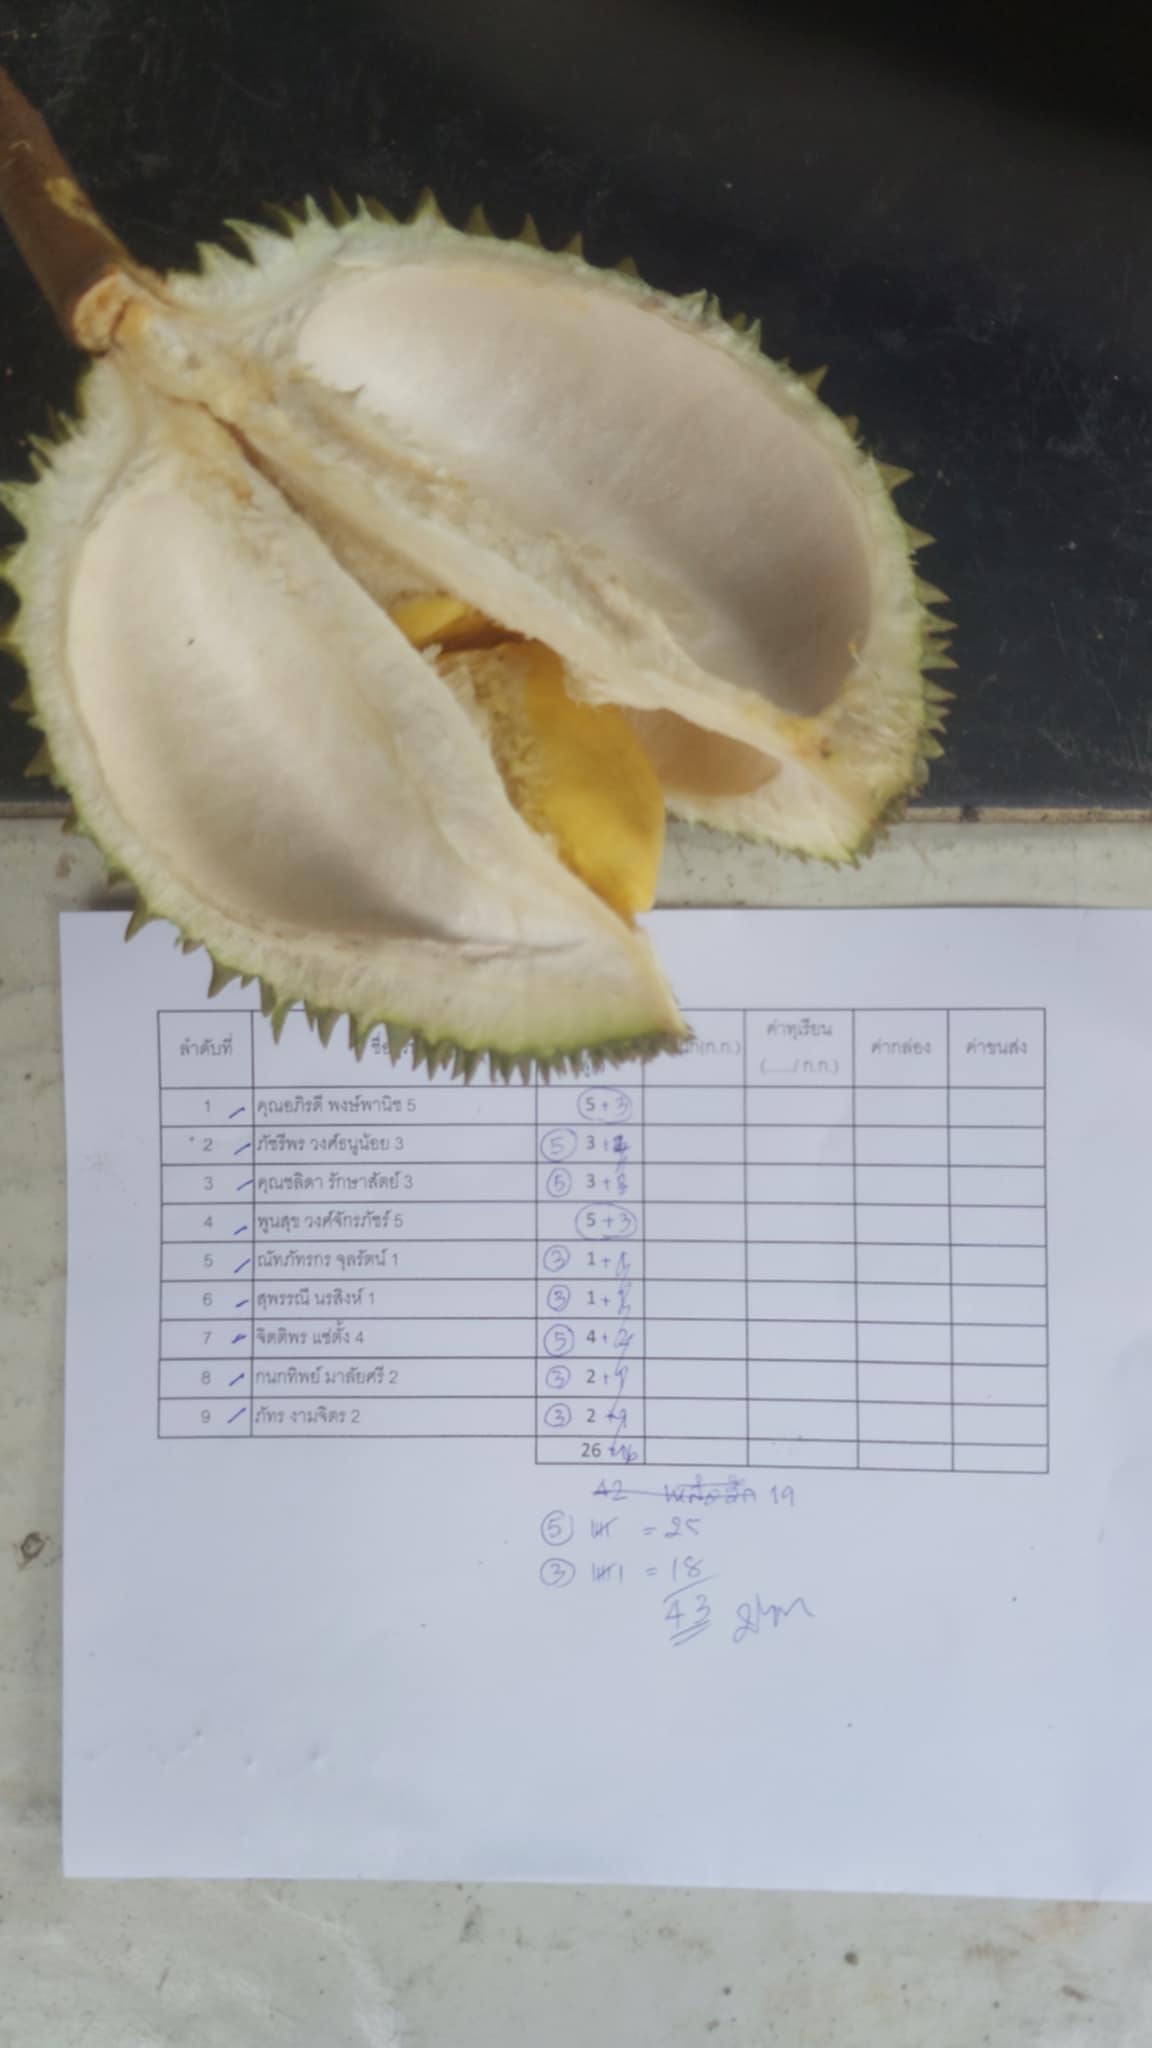 ลำดับที่ ชื่อ ค่าทุเรียน ค่ากล่อง ค่าขนส่ง
(...../ก.ก.)
1 คุณอภิรดี พงษ์พานิช 5 5 + 3
2 ภัชรีพร วงศ์ธนูน้อย 3 5 3 +
3 คุณชลิดา รักษาสัตย์ 3 5 3 +
4 พูนสุข วงศ์จักรภัชร์ 5 5 + 3
5 ณัทภัทรกร จุลรัตน์ 1 3 1 +
6 สุพรรณี นรสิงห์ 1 3 1 +
7 จิตติพร แซ่ตั้ง 4 5 4 + 2
8 กนกทิพย์ มาลัยศรี 2 3 2 + 1
9 ภัทร งามจิตร 2 3 2 + 1
26 + 16
42 เหลืออีก 19
5 = 25
3 = 18
43